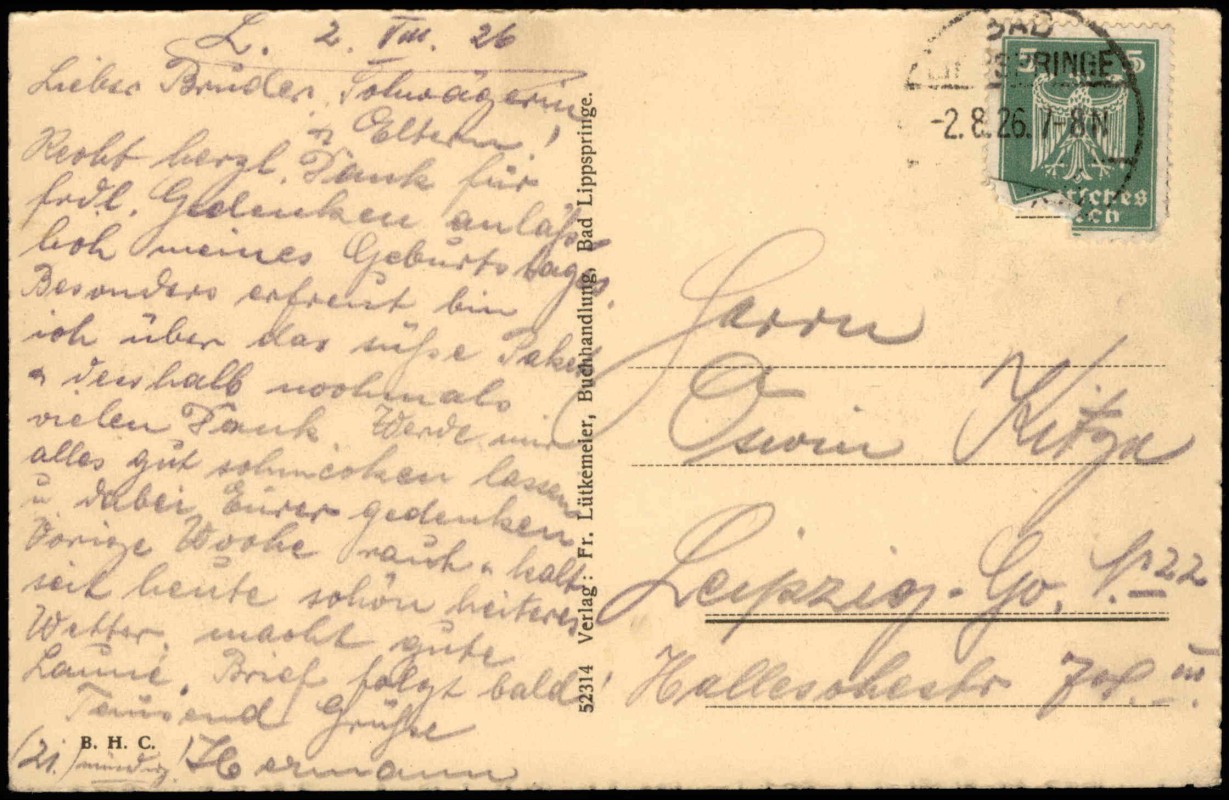 L. 2. VIII. 26
Lieber Bruder, Schwägerin
+ Eltern!
Recht herzl. Dank für
frdl. Gedenken anläss-
lich meines Geburtstages.
Besonders erfreut bin
ich über das süße Paket
u desshalb nochmals
vielen Dank. Werde mir
alles gut schmecken lassen
u dabei Eurer gedenken
Vorige Woche rauh u kalt
seit heute schön heiteres
Wetter, macht gute
Laune. Brief folgt bald!
Tausend Grüße
Hermann
(21.) mündig!
B. H. C.
52314 Verlag: Fr. Lütkemeier, Buchhandlung, Bad Lippspringe.
BAD
LIPPSPRINGE
-2.8.26. 7-8N
5 5
Deutsches
Reich
Herrn
Oswin Kitza
Leipzig-Go. N 22
Halleschestr III